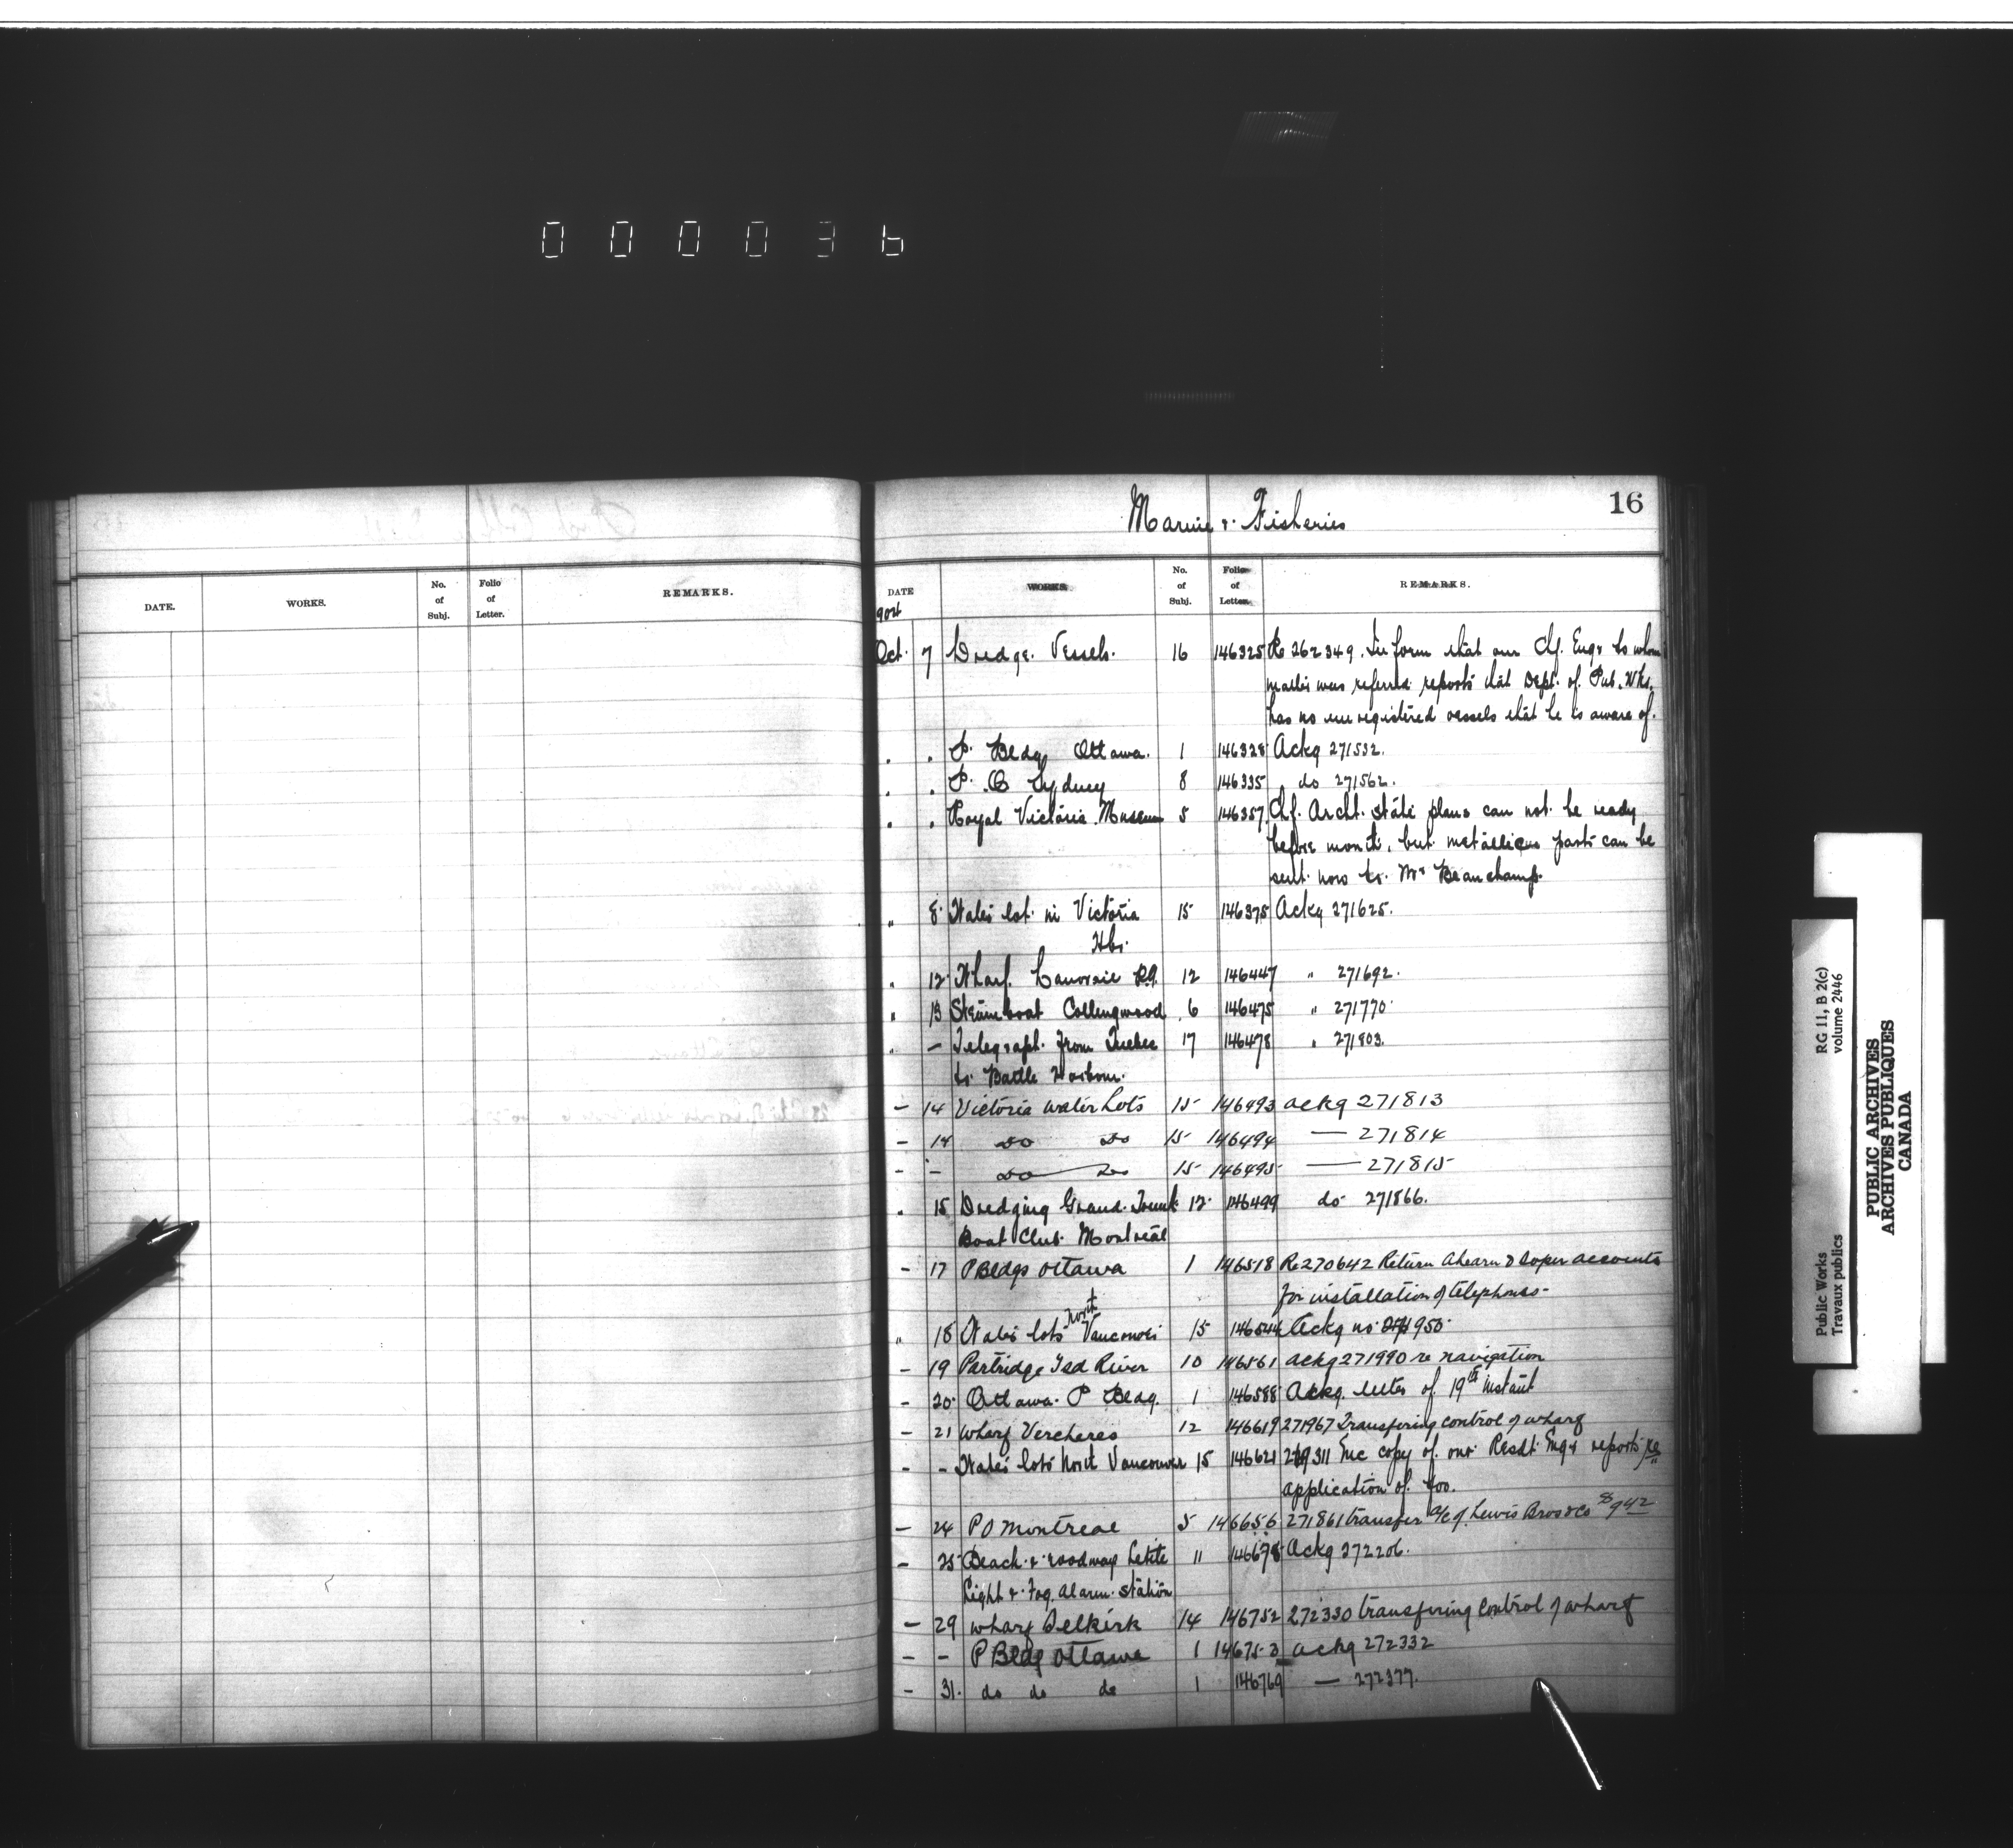 0 0 0 0 3 6
16
Marine & Fisheries
DATE. WORKS. No. of Subj. Folio of Letter. REMARKS.
DATE WORKS. No. of Subj. Folio of Letter. REMARKS.
Oct. 7 Dredge Vessels. 16 146325 Re 262349. Inform that our Chf. Engr to whom
matter was referred reports that Dept. of Pub. Wks.
has no unregistered vessels that he is aware of.
" " P. Bldg Ottawa. 1 146328 Ackg 271532.
" " P. O Sydney 8 146335 do 271562.
" " Royal Victoria Museum 5 146357 Chf. Archt. state plans can not be ready
before month, but metallic parts can be
sent now to Mr Beauchamp.
" 8 Water lot in Victoria 15 146375 Ackg 271625.
Hbr.
" 12 Wharf Lanoraie P.Q. 12 146447 " 271692.
" 13 Steamboat Collingwood 6 146475 " 271770
" — Telegraph from Quebec 17 146478 " 271803.
to Battle Harbour.
– 14 Victoria water Lots 15 146493 ackg 271813
– 14 do do 15 146494 — 271814
– – do do 15 146495 — 271815
" 15 Dredging Grand Trunk 12 146499 do 271866.
Boat Club Montreal
– 17 P Bldgs Ottawa 1 146518 Re 270642 Return Ahearn & Soper accounts
for installation of telephones -
" 18 Water lots North Vancouver 15 146544 Ackg no 271950
– 19 Partridge Isd River 10 146561 ackg 271990 re navigation
– 20 Ottawa P Bldg. 1 146588 Ackg. letter of 19th instant
– 21 wharf Vercheres 12 146619 271967 Transfering control of wharf
– – Water lots North Vancouver 15 146621 311 Enc copy of our Resdt Engr reports re
application of
– 24 P O Montreal 5 146656 271861 transfer a/c of Lewis Bros & Co $942
– 25 Beach & roadway Letite 11 146678 Ackg 272206.
Light & Fog Alarm station
– 29 wharf Selkirk 14 146752 272330 transfering control of wharf
– – P Bldg Ottawa 1 146753 ackg 272332
– 31. do do do 1 146769 — 272377.
Public Works RG 11, B 2(c)
Travaux publics volume 2446
PUBLIC ARCHIVES
ARCHIVES PUBLIQUES
CANADA